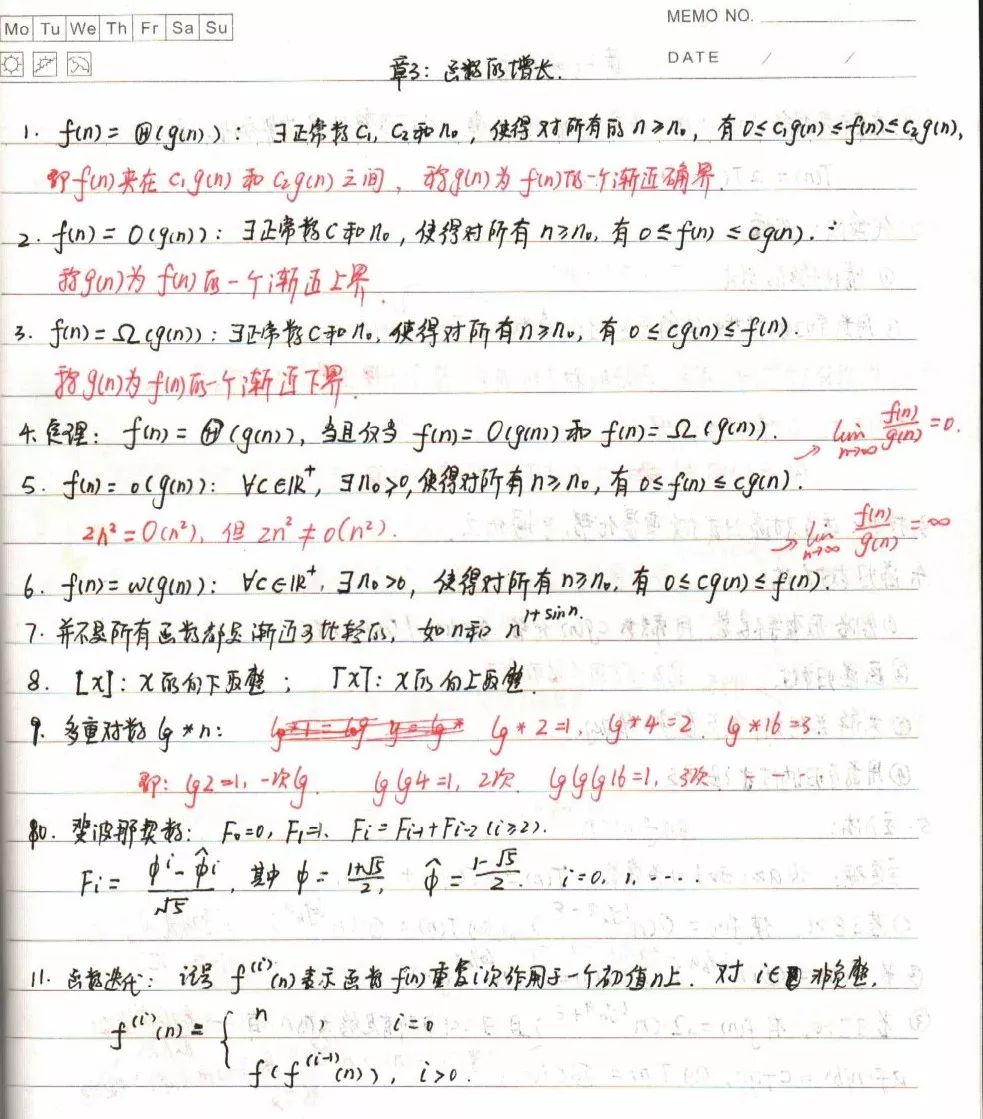 Mo Tu We Th Fr Sa Su
MEMO NO.
DATE / /
章3: 函数的增长.
1. f(n) = Θ(g(n)): ∃正常数 c₁, c₂ 和 n₀, 使得对所有的 n≥n₀, 有 0≤c₁g(n)≤f(n)≤c₂g(n),
即 f(n) 夹在 c₁g(n) 和 c₂g(n) 之间, 称g(n)为 f(n)的一个渐近确界.
2. f(n) = O(g(n)): ∃正常数 C 和 n₀, 使得对所有 n≥n₀, 有 0≤f(n)≤cg(n).
称g(n)为 f(n)的一个渐近上界.
3. f(n) = Ω(g(n)): ∃正常数 C 和 n₀, 使得对所有 n≥n₀, 有 0≤cg(n)≤f(n).
称g(n)为 f(n)的一个渐近下界.
4. 定理: f(n) = Θ(g(n)), 当且仅当 f(n) = O(g(n)) 和 f(n) = Ω(g(n)). → lim n→∞ f(n)/g(n) = 0.
5. f(n) = o(g(n)): ∀c∈IR⁺, ∃n₀>0, 使得对所有 n≥n₀, 有 0≤f(n)≤cg(n).
2n² = O(n²), 但 2n² ≠ o(n²). → lim n→∞ f(n)/g(n) = ∞
6. f(n) = ω(g(n)): ∀c∈IR⁺, ∃n₀>0, 使得对所有 n≥n₀, 有 0≤cg(n)≤f(n).
7. 并不是所有函数都是渐近可比较的, 如 n 和 n^(1+sin n).
8. ⌊x⌋: x 的向下取整; ⌈x⌉: x 的向上取整.
9. 多重对数 lg * n: lg * 2 = 1, lg * 4 = 2. lg * 16 = 3
即: lg2 = 1, 一次lg. lg lg 4 = 1, 2次. lg lg lg 16 = 1, 3次.
10. 斐波那契数: F₀=0, F₁=1. Fi = Fi-1 + Fi-2 (i≥2).
Fi = (φ^i - φ̂^i)/√5, 其中 φ = (1+√5)/2, φ̂ = (1-√5)/2. i=0, 1, ....
11. 函数迭代: 记号 f^(i)(n) 表示函数 f(n) 重复i次作用于一个初值n上. 对 i∈ 非负整.
f^(i)(n) = { n, i=0
f(f^(i-1)(n)), i>0.